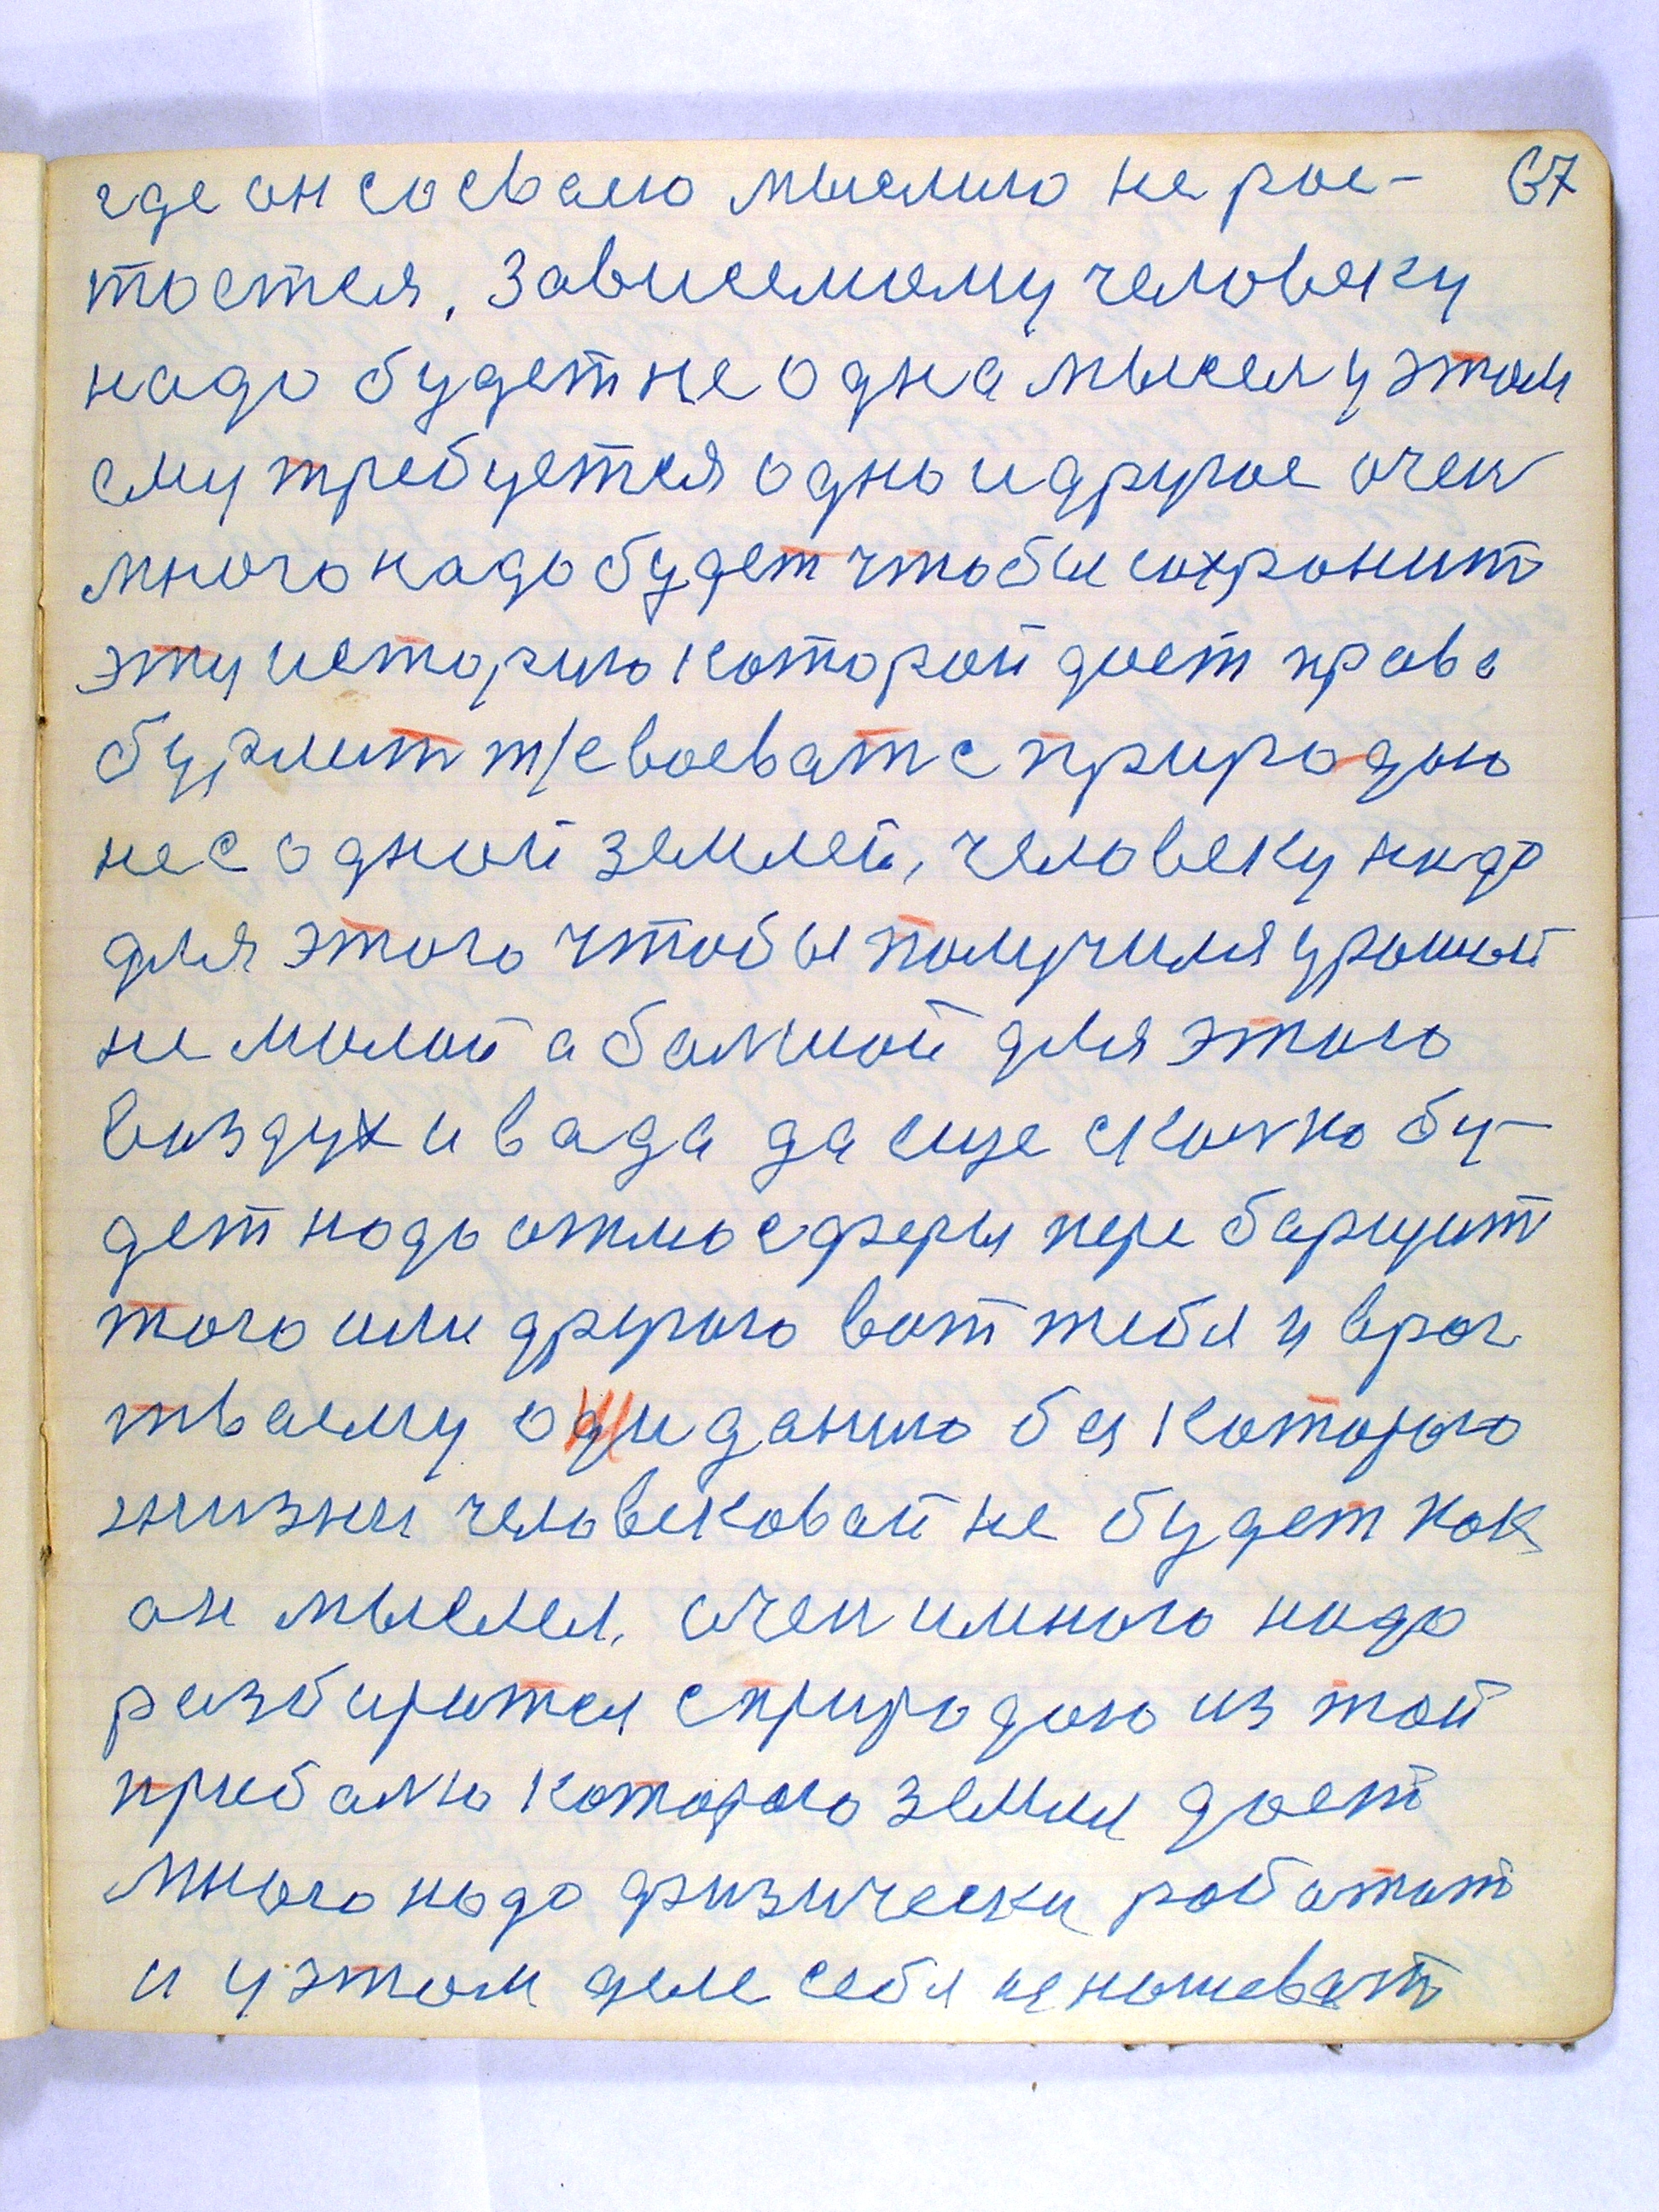 где он со сваею мыслию не рос- 67
тоется. Зависемому человеку
надо будет не одна мысля у этом
ему требуется одно и другое очен
много надо будет чтобы сохронит
эту историю которой дает права
бурлит т/е воеват с природою
не с одной землей, человеку надо
для этого чтобы получился урожай
не малой а болшой для этого
воздух и вада да еще сколко бу-
дет надо атмосферы перебарщит
того или другого вот тебя и враг
тваему ожиданию без которого
жизни человековай не будет как
он мыслел. очен и много надо
разбиратся с природою из той
прибалю которого земля дает
много надо физически работат
и у этом деле себя изношеват